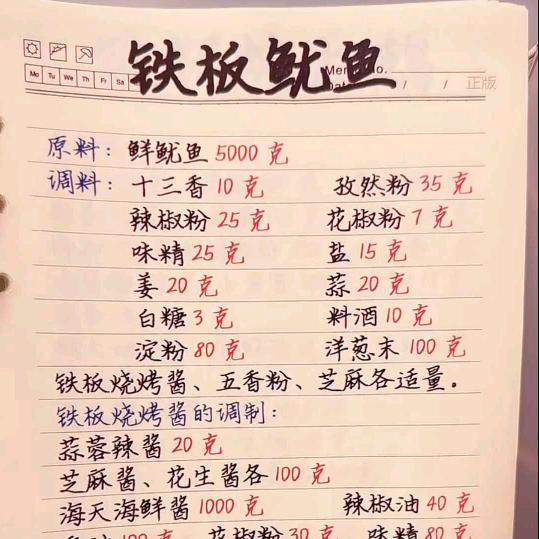 铁板鱿鱼
Mo Tu We Th Fr Sa
正版
原料：鲜鱿鱼 5000 克
调料：十三香 10 克 孜然粉 35 克
辣椒粉 25 克 花椒粉 7 克
味精 25 克 盐 15 克
姜 20 克 蒜 20 克
白糖 3 克 料酒 10 克
淀粉 80 克 洋葱末 100 克
铁板烧烤酱、五香粉、芝麻各适量。
铁板烧烤酱的调制：
蒜蓉辣酱 20 克
芝麻酱、花生酱各 100 克
海天海鲜酱 1000 克 辣椒油 40 克
花椒粉 30 克 味精 80 克